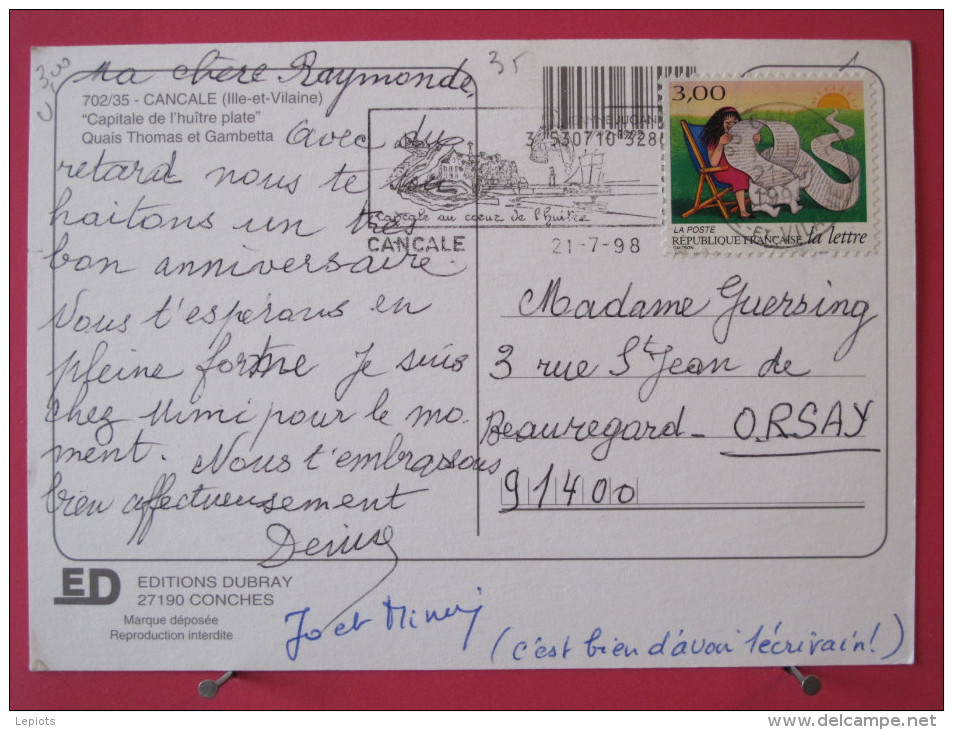 3,00
35
Ma chère Raymonde,
702/35 - CANCALE (Ille-et-Vilaine)
"Capitale de l'huître plate"
Quais Thomas et Gambetta
avec du
retard nous te sou
haitons un très
bon anniversaire.
Nous t'espérons en
pleine forme Je suis
chez Mimi pour le mo-
ment. Nous t'embrassons
bien affectueusement
Denise
Jo et Mimi
(c'est bien d'avoir l'écrivain!)
3 530710 328
Cancale au coeur de l'huître
CANCALE
21-7-98
3,00
LA POSTE
RÉPUBLIQUE FRANÇAISE la lettre
Madame Guersing
3 rue St Jean de
Beauregard - ORSAY
91400
ED
EDITIONS DUBRAY
27190 CONCHES
Marque déposée
Reproduction interdite
Lepiots
http://www.delcampe.net